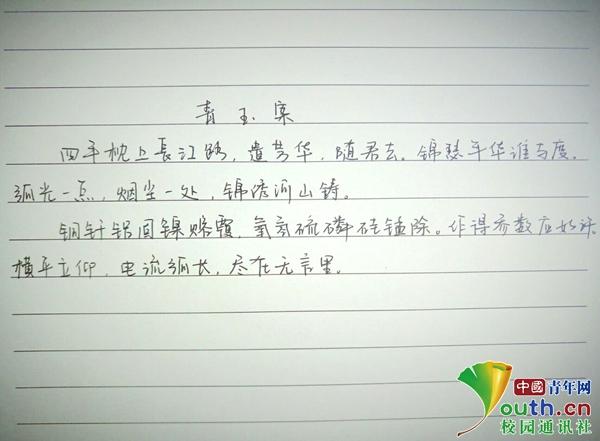 青玉案
四年枕上長江路，遗芳华，随君去。锦瑟年华谁与度，
弧光一点，烟尘一处，锦绣河山铸。
铜钎铝固镍铬霞，氧氢硫磷硅锰除。得参数应如
横平立仰，电流弧长，尽在无言里。
中國青年网
youth.cn
校园通讯社